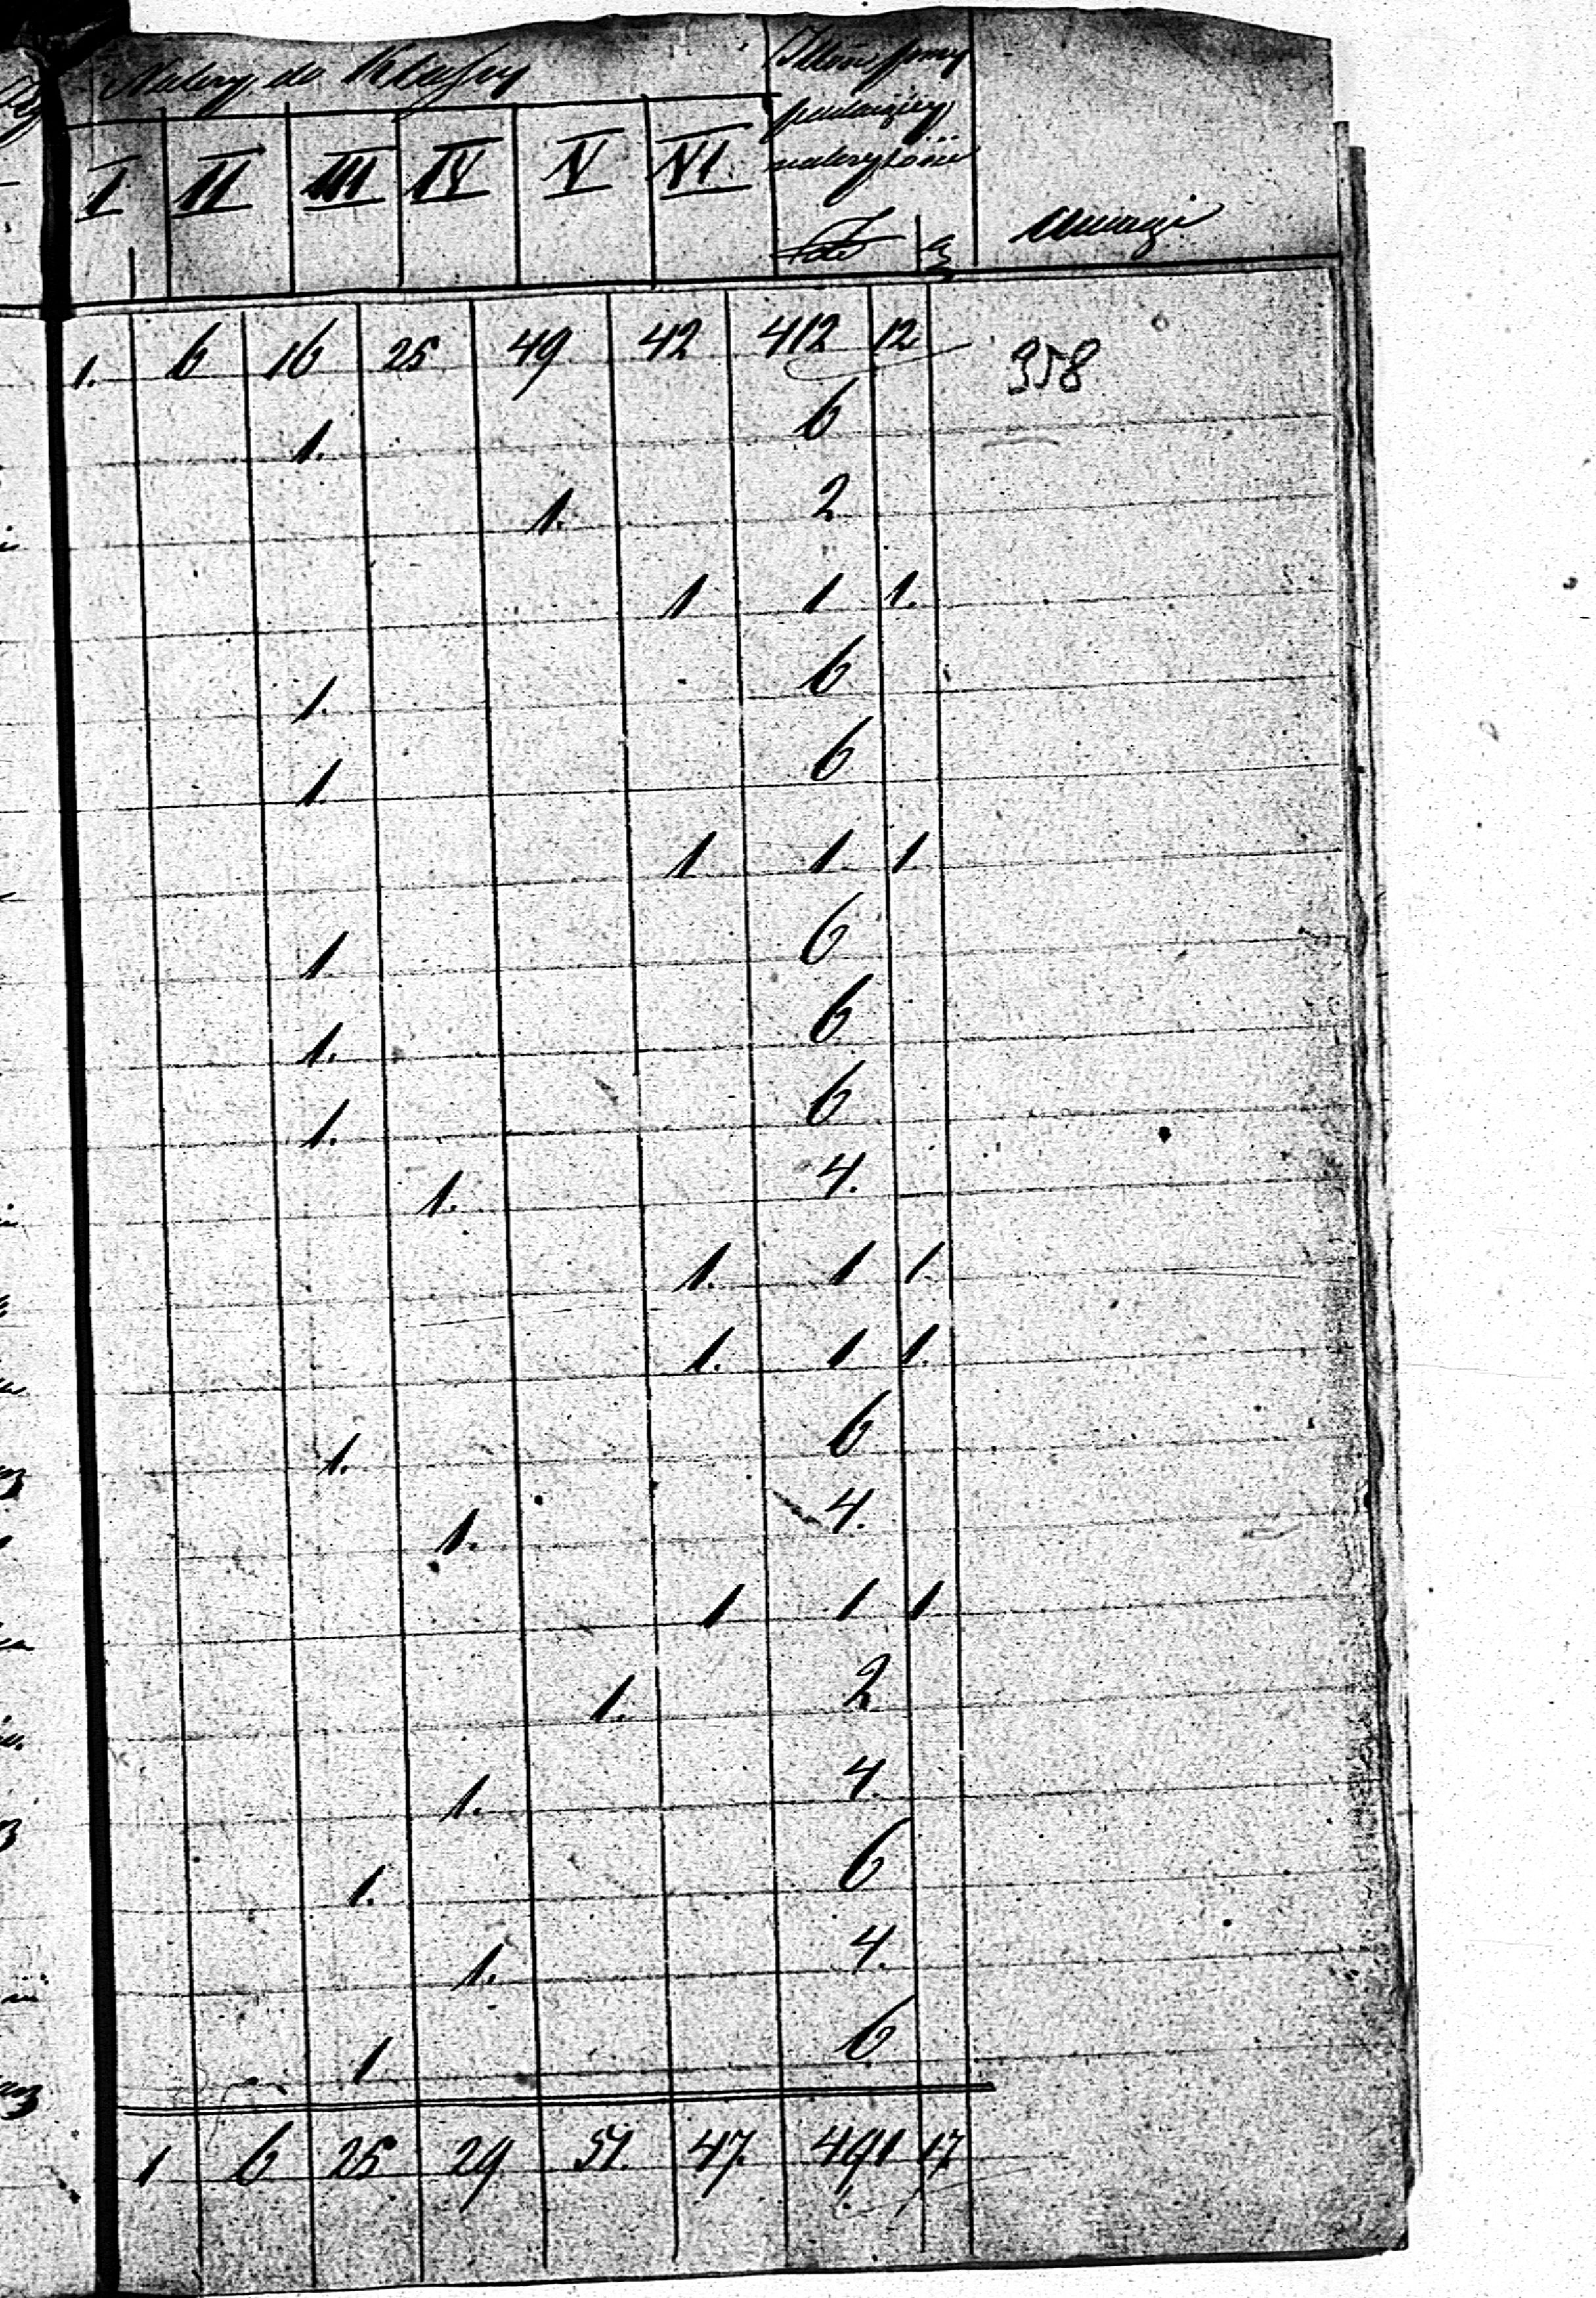 Należy do Klassy
I II III IV V VI
Uwagi
1. 6 16 25 49 42 412 12
958
1. 6
1. 2
1 1 1.
1. 6
1. 6
1 1 1
1 6
1. 6
1. 6
1. 4.
1. 1 1
1. 1 1.
1. 6
1. 4.
1 1 1
1. 2
1. 4.
1. 6
1. 4.
1 6
1 6 25 29 51. 47. 491 17